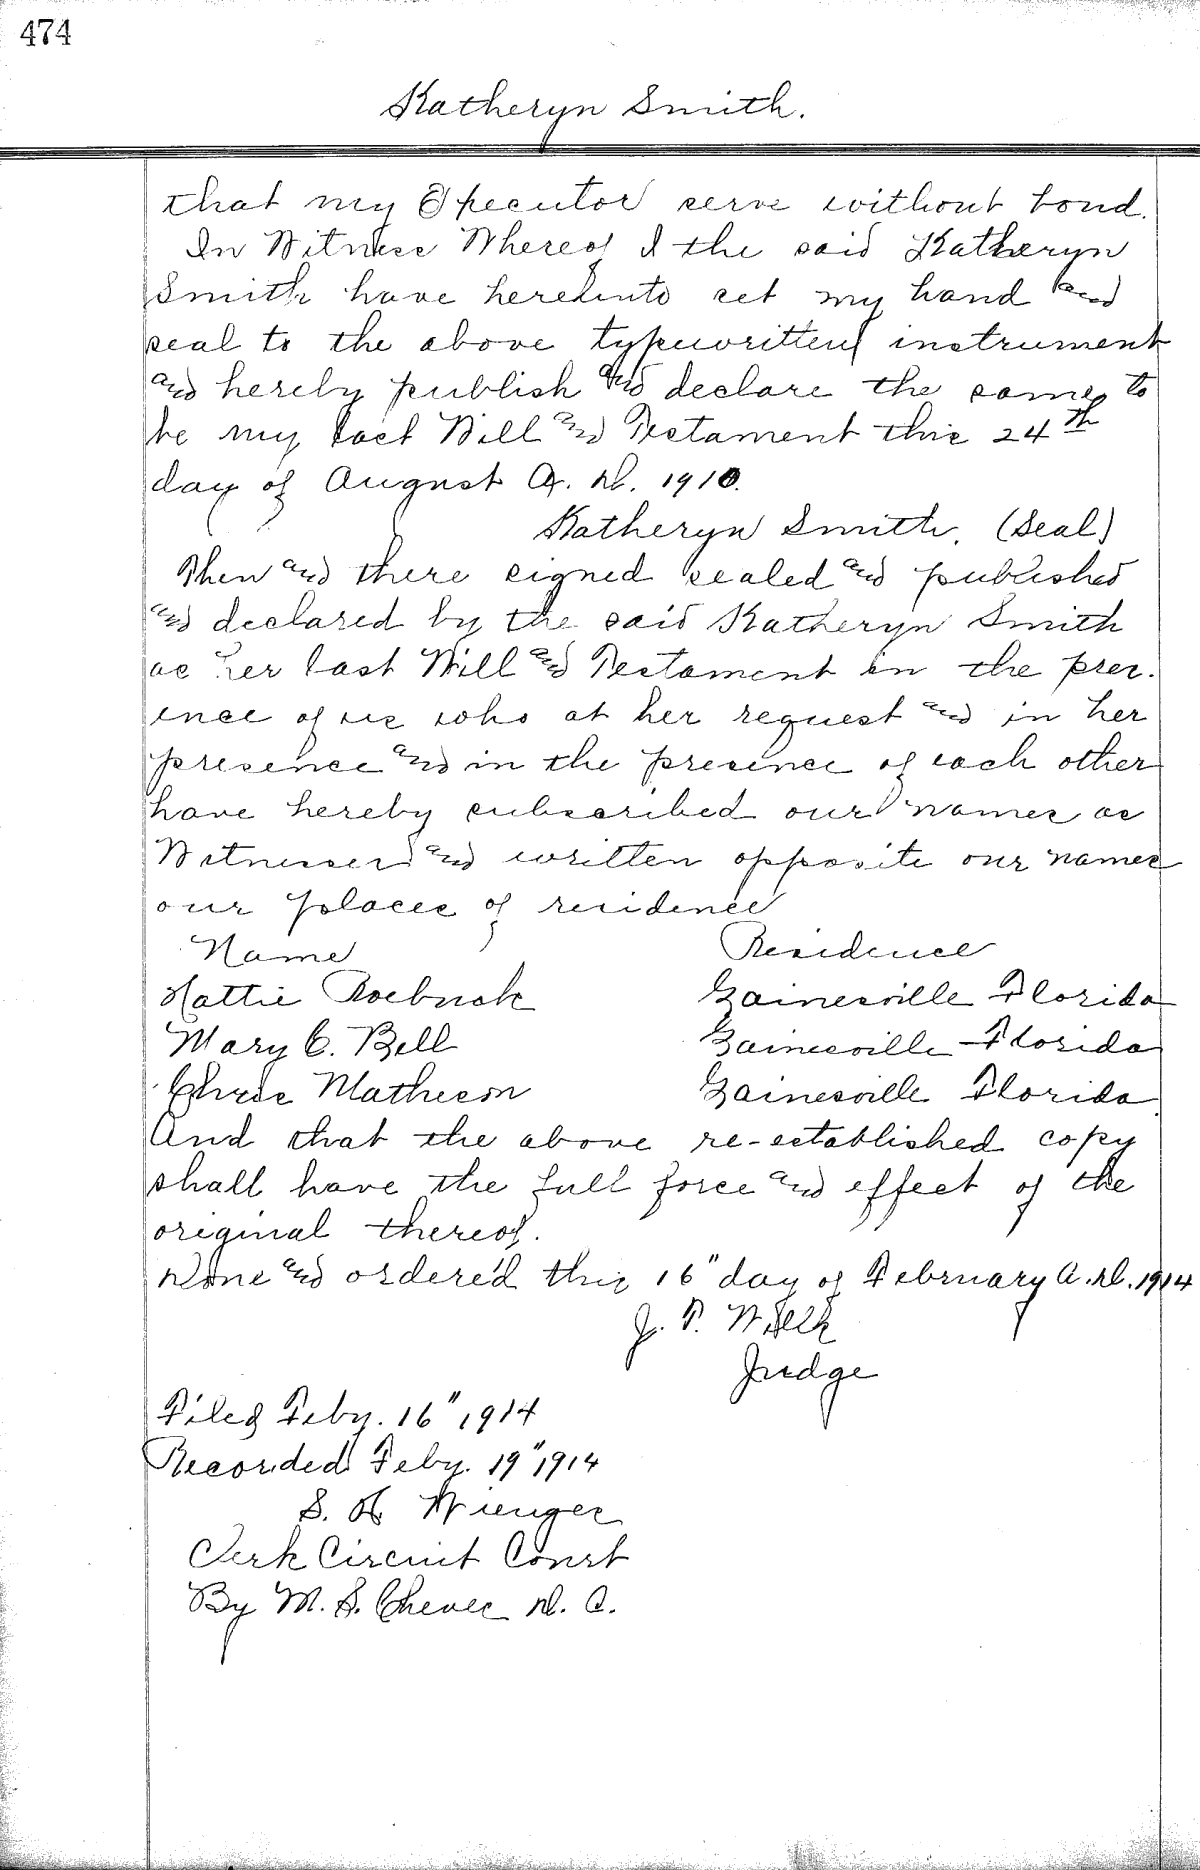 474
Katheryn Smith.
that my Executor serve without bond.
In Witness Whereof I the said Katheryn
Smith have hereunto set my hand and
seal to the above typewritten instrument
and hereby publish and declare the same to
be my last Will and Testament this 24th
day of August A. D. 1910.
Katheryn Smith. (Seal)
Then and there signed sealed and published
and declared by the said Katheryn Smith
as her last Will and Testament in the pres-
ence of us who at her request and in her
presence and in the presence of each other
have hereby subscribed our names as
Witnesses and written opposite our names
our places of residence
Name Residence
Hattie Roebuck Gainesville Florida
Mary C. Bell Gainesville Florida
Chris Matheson Gainesville Florida
And that the above re-established copy
shall have the full force and effect of the
original thereof.
Done and ordered this 16" day of February A. D. 1914
J. T. Wills
Judge
Filed Feby. 16" 1914
Recorded Feby. 19" 1914
S. H. Wienges
Clerk Circuit Court
By M. S. Cheves D. C.